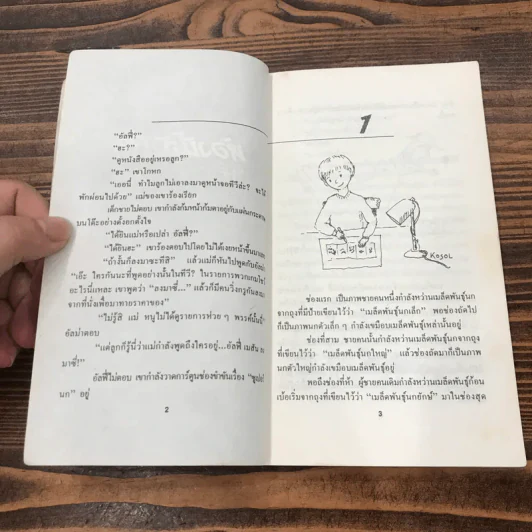 "อัลฟี่?"
"ฮะ?"
"ดูหนังสืออยู่เหรอลูก?"
"ฮะ" เขาโกหก
"เออนี่ ทำไมลูกไม่เอาลงมาดูหน้าจอทีวีล่ะ? จะได้
พักผ่อนไปด้วย" แม่ของเขาร้องเรียก
เด็กชายไม่ตอบ เขากำลังก้มหน้าก้มตาอยู่กับแผ่นกระดาษ
บนโต๊ะอย่างตั้งอกตั้งใจ
"ได้ยินแม่หรือเปล่า อัลฟี่?"
"ได้ยินฮะ" เขาร้องตอบไปโดยไม่ได้เงยหน้าขึ้นมา
"ถ้างั้นก็ลงมาซะทีสิ" แล้วแม่ก็หันไปพูดกับ
"เอ๊ะ ใครกันนะที่พูดอย่างนั้นในทีวี? ในรายการพวกเกมโชว์
อะไรนี่แหละ เขาพูดว่า "ลงมาซี่..." แล้วก็มีคนวิ่งกรูกันลง
จากที่นั่งเพื่อมาทายราคาของ"
"ไม่รู้สิ แม่ หนูไม่ได้ดูรายการห่วย ๆ พรรค์นั้น"
อัลม่าตอบ
"แต่ลูกก็รู้นี่ว่าแม่กำลังพูดถึงใครอยู่...อัลฟี่ เมสัน
มาซี่!"
อัลฟี่ไม่ตอบ เขากำลังวาดการ์ตูนช่องขำขันเรื่อง
นก" อยู่
2
1
KOSOL
ช่องแรก เป็นภาพชายคนหนึ่งกำลังหว่านเมล็ดพันธุ์นก
จากถุงที่มีป้ายเขียนไว้ว่า "เมล็ดพันธุ์นกเล็ก" พอช่องถัดไป
ก็เป็นภาพนกตัวเล็ก ๆ กำลังเขมือบเมล็ดพันธุ์เหล่านั้นอยู่
ช่องที่สาม ชายคนนั้นกำลังหว่านเมล็ดพันธุ์นกจากถุง
ที่เขียนไว้ว่า "เมล็ดพันธุ์นกใหญ่" แล้วช่องถัดมาก็เป็นภาพ
นกตัวใหญ่กำลังเขมือบเมล็ดพันธุ์อยู่
พอถึงช่องที่ห้า ผู้ชายคนเดิมกำลังหว่านเมล็ดพันธุ์ก้อน
เบ้อเริ่มจากถุงที่เขียนไว้ว่า "เมล็ดพันธุ์นกยักษ์" มาในช่องสุด
3